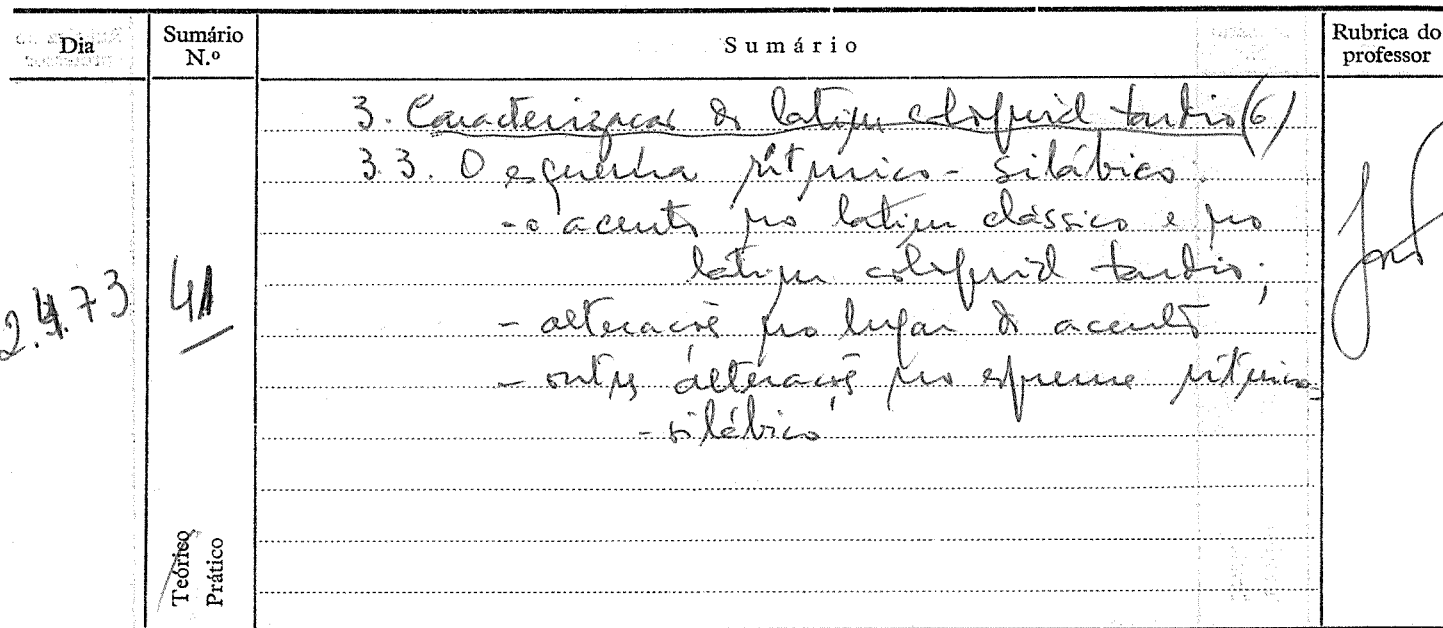 Dia
Sumário N.º
Sumário
Rubrica do professor
3. Caracterização do latim coloquial tardio (6)
3.3. O esquema rítmico-silábico:
- o acento no latim clássico e no
latim coloquial tardio;
- alterações no lugar do acento
- outras alterações no esquema rítmico-
-silábico
2.4.73
41
Teórico
Prático